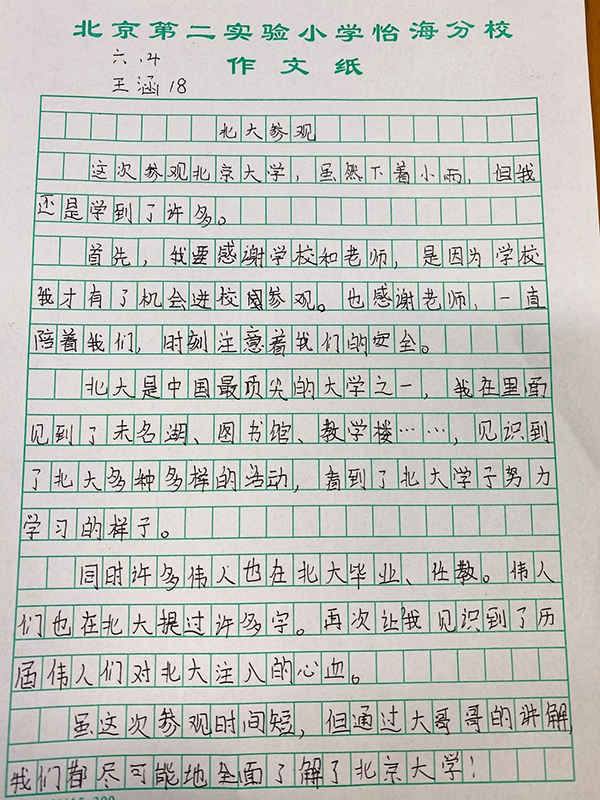 北京第二实验小学怡海分校
六.4
作文纸
王涵18
北大参观
这次参观北京大学，虽然下着小雨，但我
还是学到了许多。
首先，我要感谢学校和老师，是因为学校
我才有了机会进校园参观。也感谢老师，一直
陪着我们，时刻注意着我们的安全。
北大是中国最顶尖的大学之一，我在里面
见到了未名湖、图书馆、教学楼……，见识到
了北大多种多样的活动，看到了北大学子努力
学习的样子。
同时许多伟人也在北大毕业、任教。伟人
们也在北大提过许多字。再次让我见识到了历
届伟人们对北大注入的心血。
虽这次参观时间短，但通过大哥哥的讲解，
我们都尽可能地全面了解了北京大学！